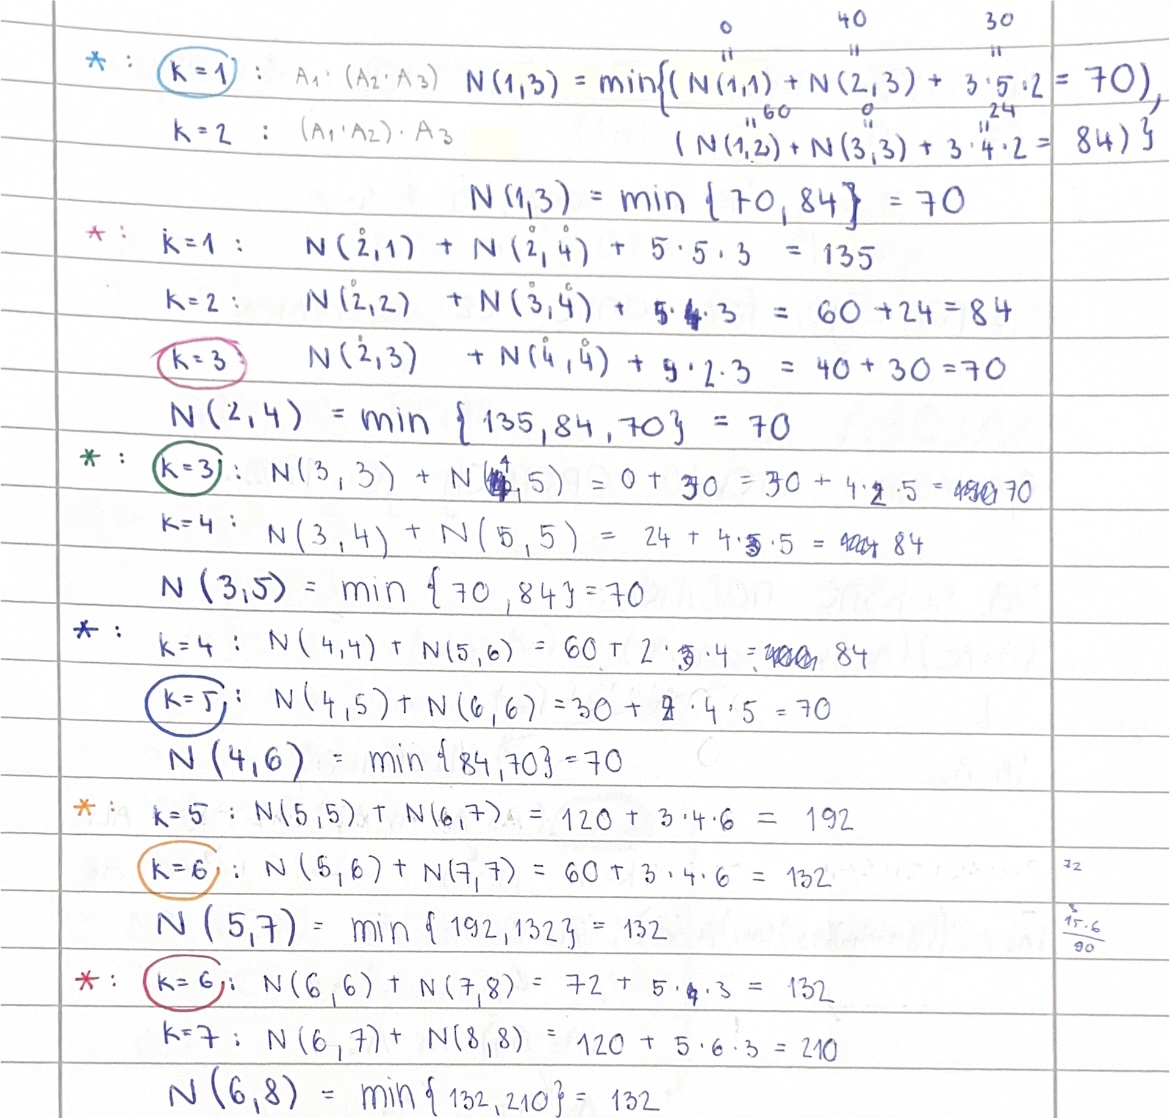 0 40 30
* : k=1 : A₁·(A₂·A₃) N(1,3) = min{(N(1,1) + N(2,3) + 3·5·2 = 70),
60 0 24
k=2 : (A₁·A₂)·A₃ (N(1,2) + N(3,3) + 3·4·2 = 84)}
N(1,3) = min {70,84} = 70
* : k=1 : N(2,1) + N(2,4) + 5·5·3 = 135
k=2 : N(2,2) + N(3,4) + 5·4·3 = 60 + 24 = 84
k=3 : N(2,3) + N(4,4) + 5·2·3 = 40 + 30 = 70
N(2,4) = min {135,84,70} = 70
* : k=3 : N(3,3) + N(4,5) = 0 + 30 = 30 + 4·2·5 = 70
k=4 : N(3,4) + N(5,5) = 24 + 4·3·5 = 84
N(3,5) = min {70,84} = 70
* : k=4 : N(4,4) + N(5,6) = 60 + 2·3·4 = 84
k=5 : N(4,5) + N(6,6) = 30 + 2·4·5 = 70
N(4,6) = min {84,70} = 70
* : k=5 : N(5,5) + N(6,7) = 120 + 3·4·6 = 192
k=6 : N(5,6) + N(7,7) = 60 + 3·4·6 = 132 72
N(5,7) = min {192,132} = 132
3
15·6
90
* : k=6 : N(6,6) + N(7,8) = 72 + 5·4·3 = 132
k=7 : N(6,7) + N(8,8) = 120 + 5·6·3 = 210
N(6,8) = min {132,210} = 132